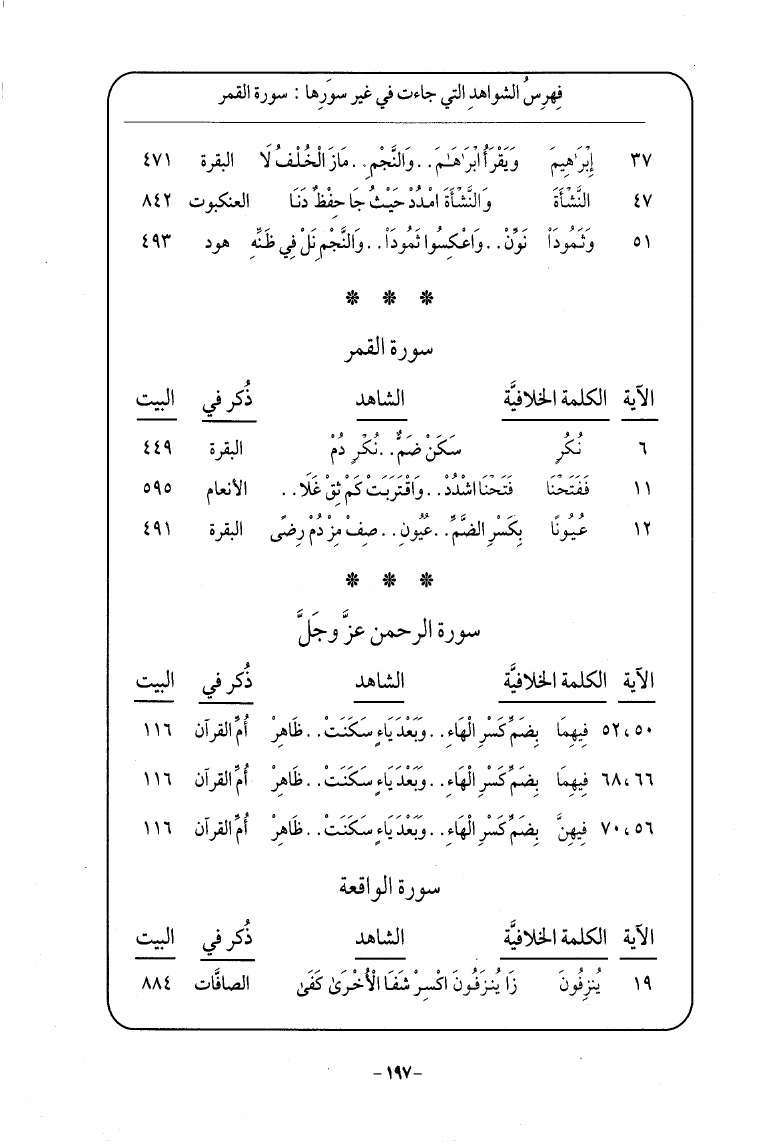 فِهرِسُ الشواهدِ التي جاءت في غير سوَرِها : سورة القمر
٣٧ إِبْرَٰهِيمَ وَيَقْرَأُ ابْرَاهَامَ..وَالنَّجْمِ..مَازَ الْخُلْفُ لَا البقرة ٤٧١
٤٧ النَّشْأَةَ وَالنَّشْأَةَ امْدُدْ حَيْثُ جَا حِفْظٌ دَنَا العنكبوت ٨٤٢
٥١ وَثَمُودَاْ نَوِّنْ..وَاعْكِسُوا ثَمُودَا..وَالنَّجْمِ نَلْ فِي ظَنِّهِ هود ٤٩٣
* * *
سورة القمر
الآية الكلمة الخلافيَّة الشاهد ذُكر في البيت
٦ نُكُرٍ سَكَنْ ضَمٌّ..نُكْرٍ دُمْ البقرة ٤٤٩
١١ فَفَتَحْنَا فَتَحْنَا اشْدُدْ..وَاقْتَرَبَتْ كَمْ ثِقْ غَلَا.. الأنعام ٥٩٥
١٢ عُيُونًا بِكَسْرِ الضَّمِّ..عُيُونِ..صِفْ مِزْ دُمْ رِضًى البقرة ٤٩١
* * *
سورة الرحمن عزَّ وجَلَّ
الآية الكلمة الخلافيَّة الشاهد ذُكر في البيت
٥٢،٥٠ فِيهِمَا بِضَمِّ كَسْرِ الْهَاءِ..وَبَعْدَ يَاءٍ سَكَنَتْ..ظَاهِرْ أُمِّ القرآن ١١٦
٦٨،٦٦ فِيهِمَا بِضَمِّ كَسْرِ الْهَاءِ..وَبَعْدَ يَاءٍ سَكَنَتْ..ظَاهِرْ أُمِّ القرآن ١١٦
٧٠،٥٦ فِيهِنَّ بِضَمِّ كَسْرِ الْهَاءِ..وَبَعْدَ يَاءٍ سَكَنَتْ..ظَاهِرْ أُمِّ القرآن ١١٦
سورة الواقعة
الآية الكلمة الخلافيَّة الشاهد ذُكر في البيت
١٩ يُنزِفُونَ زَا يُنزَفُونَ اكْسِرْ شَفَا الْأُخْرَىٰ كَفَىٰ الصافَّات ٨٨٤
-١٩٧-